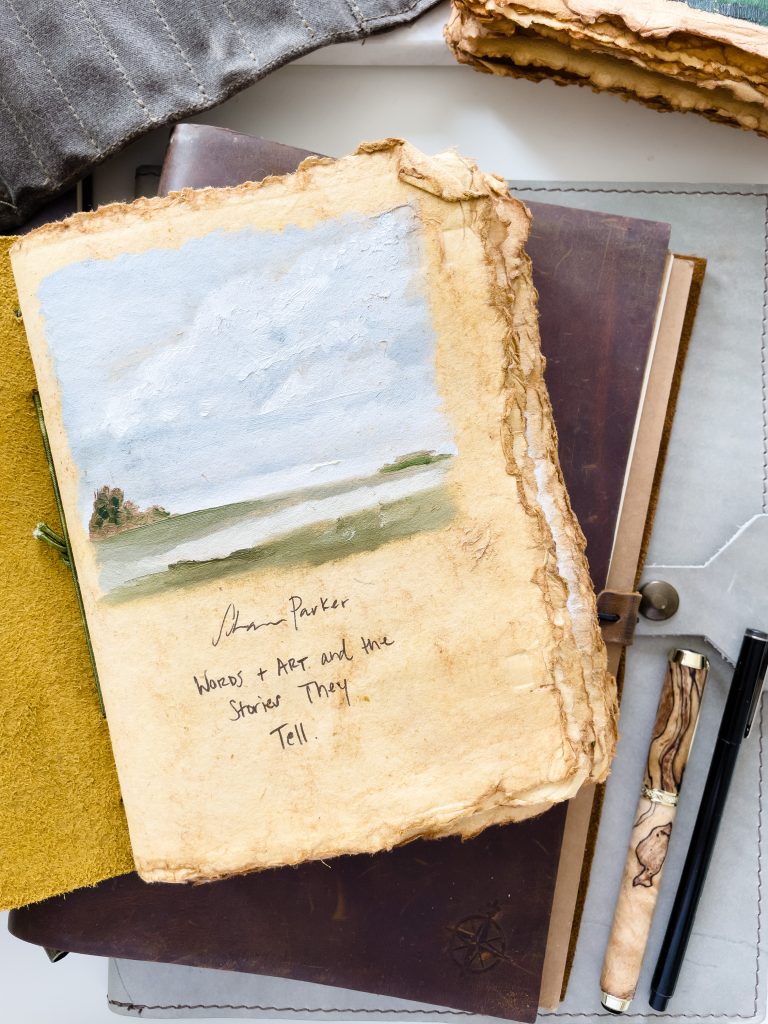 Parker
WORDS + ART. and the
Stories They
Tell.